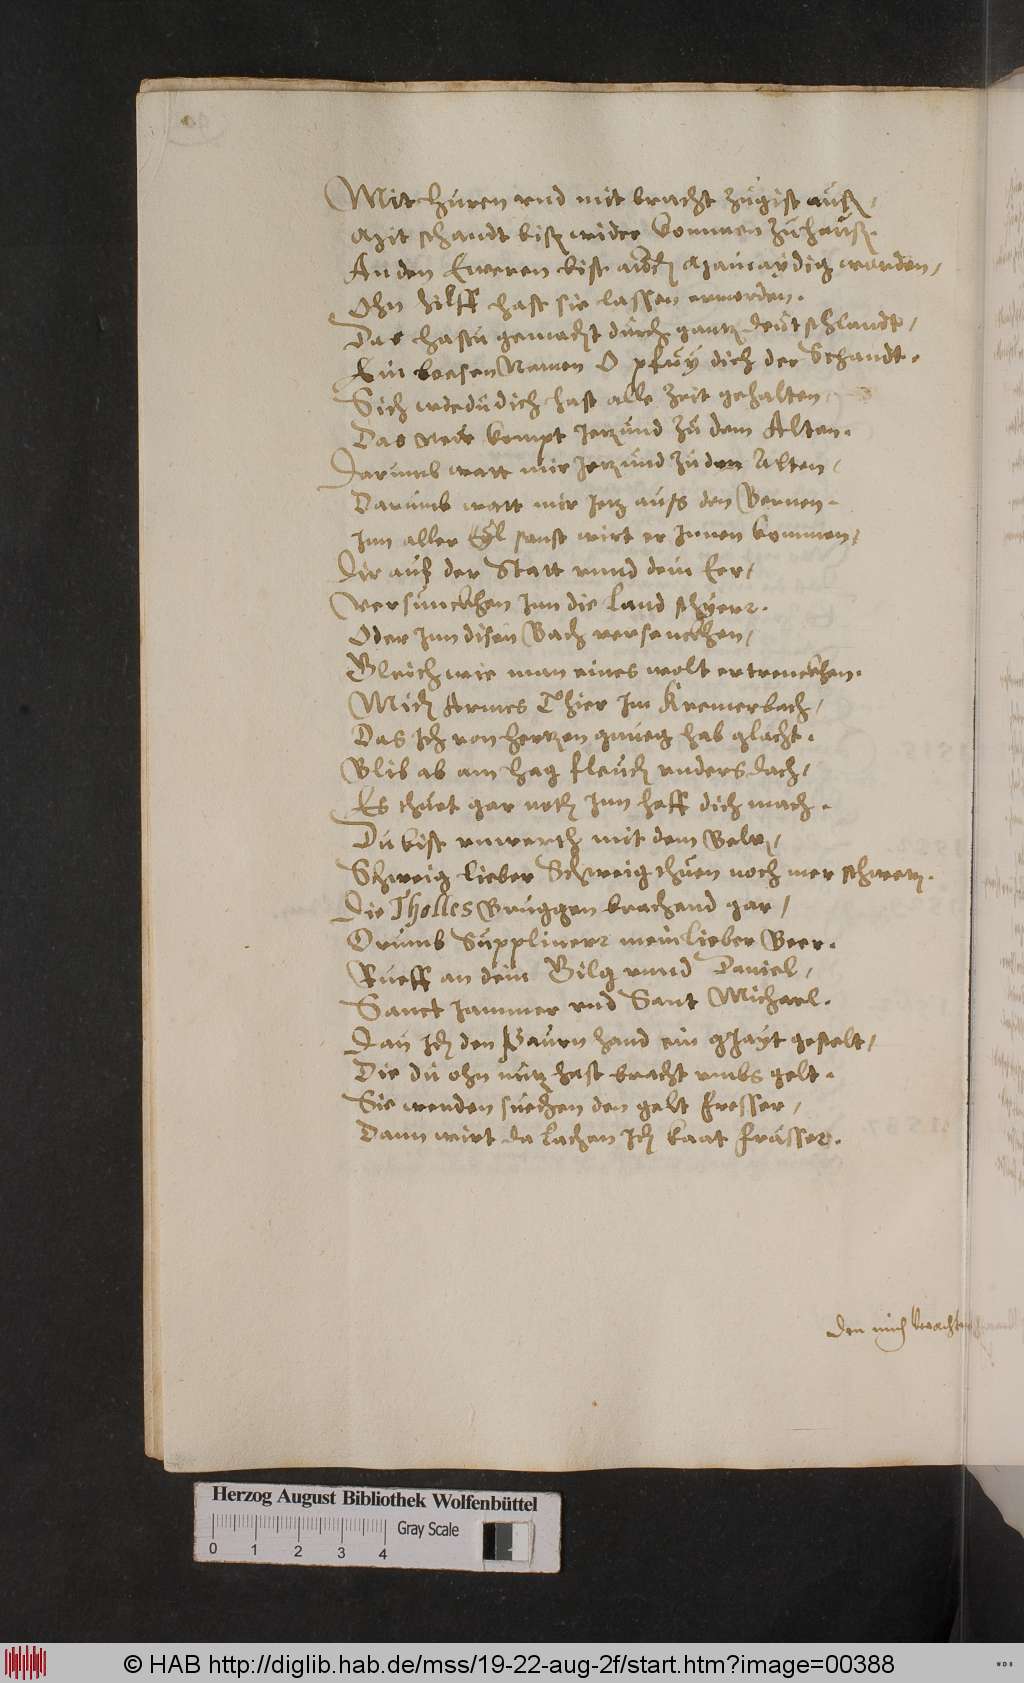 Mit huren vnd mit bracht zugist auß,
Mit schandt bist wider kommen zuhauß.
An den Eweren bist auch Mainaydig worden,
Ohn hilff hast sie lassen ermorden.
Das hastu gemacht durch gantz deutschlandt,
Ein boesen Namen O pfuy dich der Schandt.
Sich wie du dich hast alle Zeit gehalten,
Das new kompt Jetzund zu dem Alten.
Darumb watt mir Jetzund zu den Alten,
Darumb watt mir Jetz aufs den Bernen.
Inn aller Eyl sonst wirt er Innen kommen,
Dir auß der Statt vnnd dein Eer,
Versunckhen Inn die Land schyerr.
Oder Inn disen Bach versenckhen,
Gleich wie man eines wolt ertrenckhen.
Mich Armes Thier Im Kremerbach,
Das Ich von hertzen gnueg hab glacht.
Blib ab am hag fleuch vnders dach,
Es thuet gar noth Inn hoff dich mach.
Du bist vnwerth mit dem Beltz,
Schweig lieber Schweig thuen noch mer schwetz.
Die Tholles Bruggen krachend gar,
Drumb Supplinerr mein lieber Beer.
Rueff an dein Gilg vnnd Daniel,
Sanct Jammer vnd Sant Michael.
Dan Ich den Baurn hand ein gJayt gestelt,
Die du ohn nutz hast bracht vmbs gelt.
Sie werden suechen den gelt fresser,
Dann wirt da lachen Ich kaat frässer.
Den mich brachten
Herzog August Bibliothek Wolfenbüttel
Gray Scale
0 1 2 3 4
© HAB http://diglib.hab.de/mss/19-22-aug-2f/start.htm?image=00388